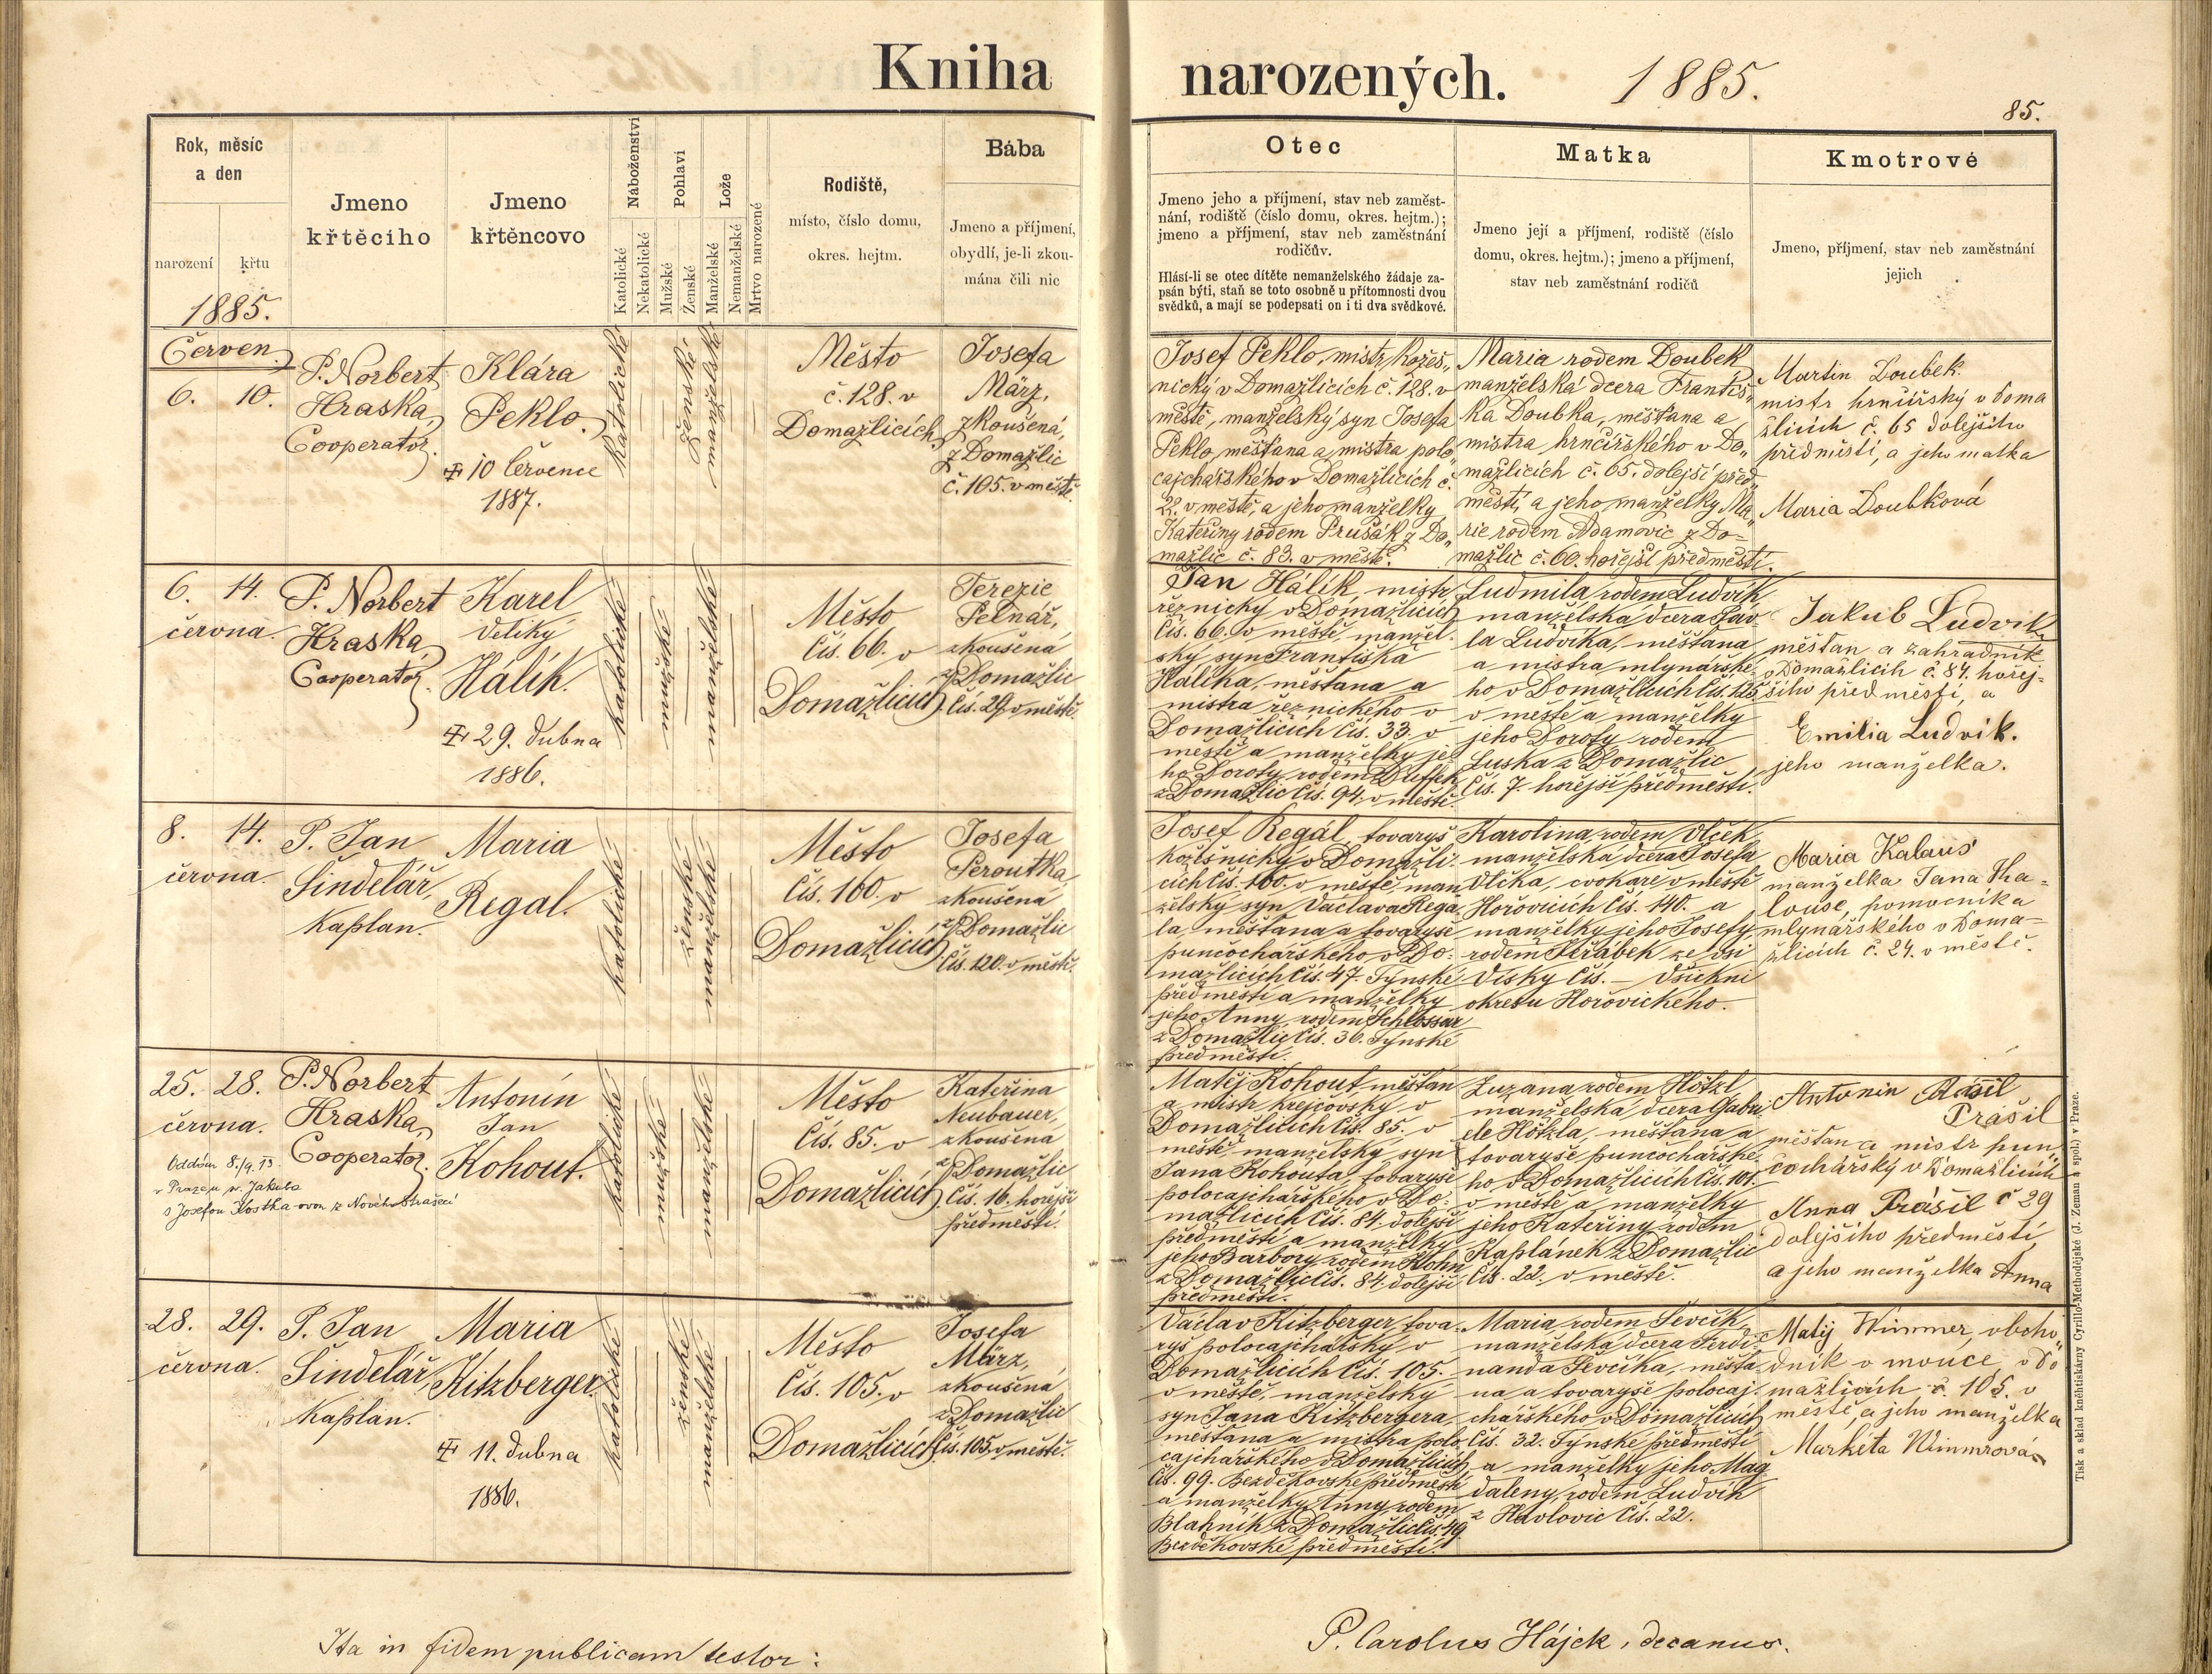 Kniha narozených. 1885.
85.
Rok, měsíc
a den
narození
křtu
1885.
Jmeno
křtěcího
Jmeno
křtěncovo
Náboženství
Katolické
Nekatolické
Pohlaví
Mužské
Ženské
Lože
Manželské
Nemanželské
Mrtvo narozené
Rodiště,
místo, číslo domu,
okres. hejtm.
Bába
Jmeno a příjmení,
obydlí, je-li zkou-
mána čili nic
Otec
Jmeno jeho a příjmení, stav neb zaměst-
nání, rodiště (číslo domu, okres. hejtm.);
jmeno a příjmení, stav neb zaměstnání
rodičův.
Hlásí-li se otec dítěte nemanželského žádaje za-
psán býti, staň se toto osobně u přítomnosti dvou
svědků, a mají se podepsati on i ti dva svědkové.
Matka
Jmeno její a příjmení, rodiště (číslo
domu, okres. hejtm.); jmeno a příjmení,
stav neb zaměstnání rodičů
Kmotrové
Jmeno, příjmení, stav neb zaměstnání
jejich
Červen.
6. 10.
P. Norbert
Hraska,
Cooperator.
Klára
Peklo.
10 července
1887.
katolické
ženské
manželské
Město
č. 128. v
Domažlicích
Josefa
März,
zkoušená,
z Domažlic
č. 105. v městě.
Josef Peklo, mistr kožeš„
nický v Domažlicích č. 128. v
městě, manželský syn Josefa
Peklo, měšťana a mistra polo„
cajchařského v Domažlicích č.
22. v městě, a jeho manželky
Kateřiny rodem Prušák z Do„
mažlic č. 83. v městě.
Maria rodem Doubek
manželská dcera Františ„
ka Doubka, měšťana a
mistra hrnčířského v Do„
mažlicích č. 65. dolejší před„
městí, a jeho manželky Ma„
rie rodem Adamovic z Do=
mažlic č. 60. hořejší předměstí.
Martin Doubek
mistr hrnčířský v Doma
žlicích č. 65 dolejšího
předměstí, a jeho matka
Maria Doubková
6. 14.
června.
P. Norbert
Hraska,
Cooperator.
Karel
Veliký
Hálík.
29. dubna
1886.
katolické
mužské
manželské
Město
Čís. 66. v
Domažlicích
Terezie
Pelnář,
zkoušená
z Domažlic
Čís. 29 v městě.
Jan Hálík, mistr
řeznický v Domažlicích
Čís. 66. v městě, manžel-
ský syn Františka
Hálíka, měšťana a
mistra řeznického v
Domažlicích Čís. 33. v
městě a manželky je-
ho Doroty rodem Duffek
z Domažlic Čís. 94. v městě.
Ludmila rodem Ludvík
manželská dcera Páv-
la Ludvíka, měšťana
a mistra mlynářské-
ho v Domažlicích Čís. 125.
v městě a manželky
jeho Doroty rodem
Luska z Domažlic
Čís. 7. hořejší předměstí.
Jakub Ludvik
měšťan a zahradník
v Domažlicích č. 84. hořej-
šího předměstí, a
Emilia Ludvík.
jeho manželka.
8. 14.
června.
P. Jan
Šindelář,
kaplan.
Maria
Regal.
katolické
ženské
manželské
Město
Čís. 160. v
Domažlicích
Josefa
Peroutka
zkoušená
z Domažlic
Čís. 120. v městě.
Josef Regál, tovaryš
kožešnický v Domažli-
cích Čís. 160. v městě, man
želský syn Václava Regá
la, měšťana a tovaryše
punčochářského v Do-
mažlicích Čís. 47. Týnské
předměstí a manželky
jeho Anny, rodem Schlossar
z Domažlic Čís. 36. Týnské
předměstí.
Karolina, rodem Vlček
manželská dcera Josefa
Vlčka, cvokaře v městě
Hořovicích Čís. 140. a
manželky jeho Josefy
rodem Jeřábek ze vsi
Vísky Čís. — Všichni
okresu Hořovického.
Maria Kalaus
manželka Jana Ka=
louse, pomocníka
mlynářského v Doma=
žlicích č. 24. v městě.
25. 28.
června.
Oddán 8./9. 13.
v Praze u sv. Jakuba
s Josefou Kostka-ovou z Nového Strašecí
P. Norbert
Hraska,
Cooperator.
Antonín
Jan
Kohout.
katolické
mužské
manželské
Město
Čís. 85. v
Domažlicích
Kateřina
Neubauer,
zkoušená
z Domažlic
Čís. 16. hořejší
předměstí.
Matěj Kohout, měšťan
a mistr krejčovský v
Domažlicích Čís. 85. v
městě, manželský syn
Jana Kohouta, tovaryše
polocajchářského v Do-
mažlicích Čís. 84. dolejší
předměstí a manželky
jeho Barbory, rodem Kohn
z Domažlic Čís. 84. dolejší
předměstí.
Zuzana rodem Hötzl
manželská dcera Gabri-
ele Hötzla, měšťana a
tovaryše punčochářské-
ho v Domažlicích Čís. 101.
v městě a manželky
jeho Kateřiny, rodem
Kaplánek z Domažlic
Čís. 22. v městě.
Antonin
Prášil
měšťan a mistr pun„
čochářský v Domažlicích
Anna Prášil č 29
dolejšího předměstí
a jeho manželka Anna
28. 29.
června.
P. Jan
Šindelář,
kaplan.
Maria
Kitzberger.
11. dubna
1886.
katolické
ženské
manželské
Město
Čís. 105. v
Domažlicích
Josefa
März,
zkoušená
z Domažlic
Čís. 105. v městě.
Václav Kitzberger, tova-
ryš polocajchářský v
Domažlicích Čís. 105.
v městě, manželský
syn Jana Kitzbergera,
měšťana a mistra polo
cajchářského v Domažlicích
Čís. 99. Bezděkovské předměstí
a manželky Anny, rodem
Blahník z Domažlic Čís. 49.
Bezděkovské předměstí.
Maria, rodem Ševčík,
manželská dcera Ferdi-
nanda Ševčíka, měšťa
na a tovaryše polocaj-
chářského v Domažlicích
Čís. 32. Týnské předměstí
a manželky jeho Mag-
daleny, rodem Ludvík
z Havlovic Čís. 22.
Matěj Wimmer, obcho„
dník v mouce v Do
mažlicích č. 105. v
městě, a jeho manželka
Markéta Wimmrová
Ita in fidem publicam testor:
P. Carolus Hájek, decanus.
Tisk a sklad kněhtiskárny Cyrillo-Methodějské (J. Zeman a spol.) v Praze.